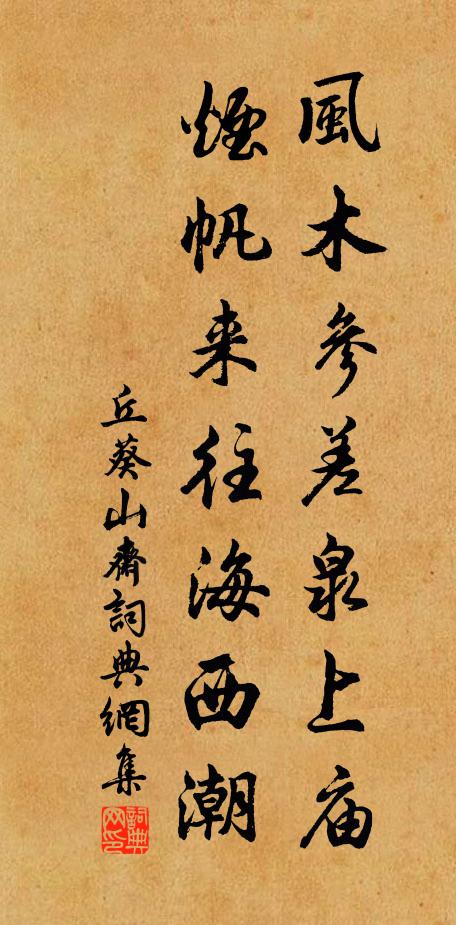 風木參差泉上庙
煙帆来往海西潮
丘葵山齋詞典網集
詞典网印